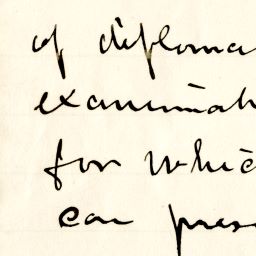 of diploma
examinah
for whic
can pres